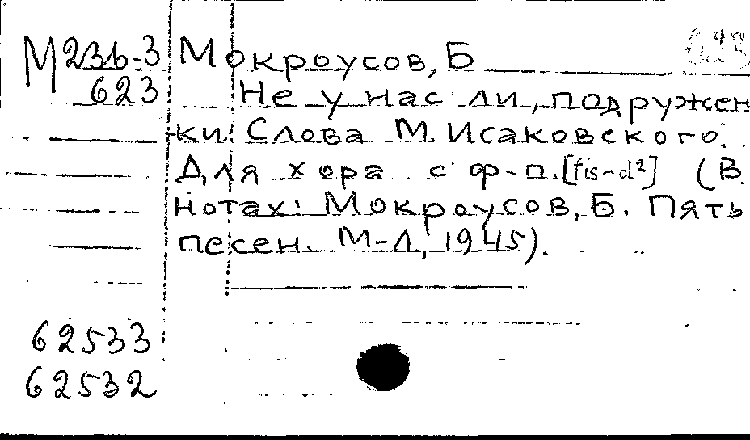 М236-3 Мокроусов, Б
623 Не у нас ли, подружен
ки. Слова М. Исаковского.
Для хора с ф-п. [fis-d²] (В
нотах: Мокроусов, Б. Пять
песен. М-Л, 1945).
62533
62532